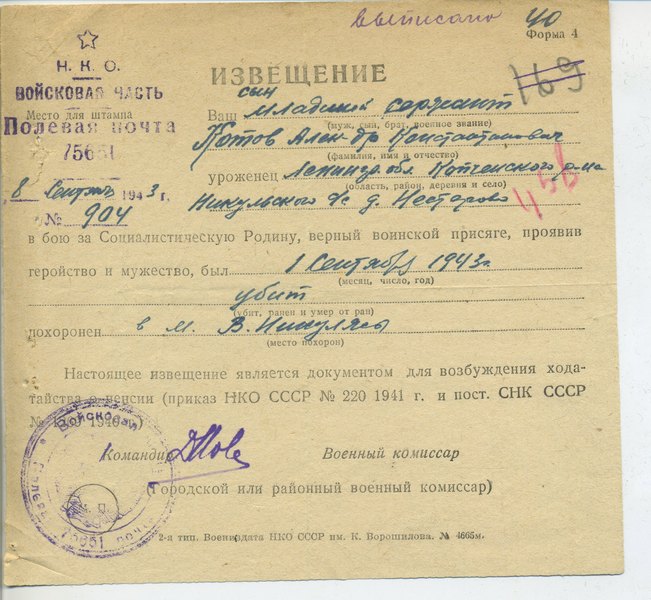 выписано
40
Форма 4
Н. К. О.
ВОЙСКОВАЯ ЧАСТЬ
Место для штампа
Полевая почта
75651
8 Сентябрь 1943 г.
№ 904
ИЗВЕЩЕНИЕ
169
сын
Ваш младший сержант
(муж, сын, брат, военное звание)
Котов Алек-др Константинович
(фамилия, имя и отчество)
уроженец Ленингр. обл.
р-на
(область, район, деревня и село)
Никульского с/с д. Нестерово
в бою за Социалистическую Родину, верный воинской присяге, проявив
геройство и мужество, был 1 Сентября 1943г.
(месяц, число, год)
убит
(убит, ранен и умер от ран)
похоронен в м. В. Никулясы
(место похорон)
Настоящее извещение является документом для возбуждения хода-
тайства о пенсии (приказ НКО СССР № 220 1941 г. и пост. СНК СССР
Командир
Военный комиссар
(Городской или районный военный комиссар)
Войсковая
75651
2-я тип. Воениздата НКО СССР им. К. Ворошилова. № 4665м.